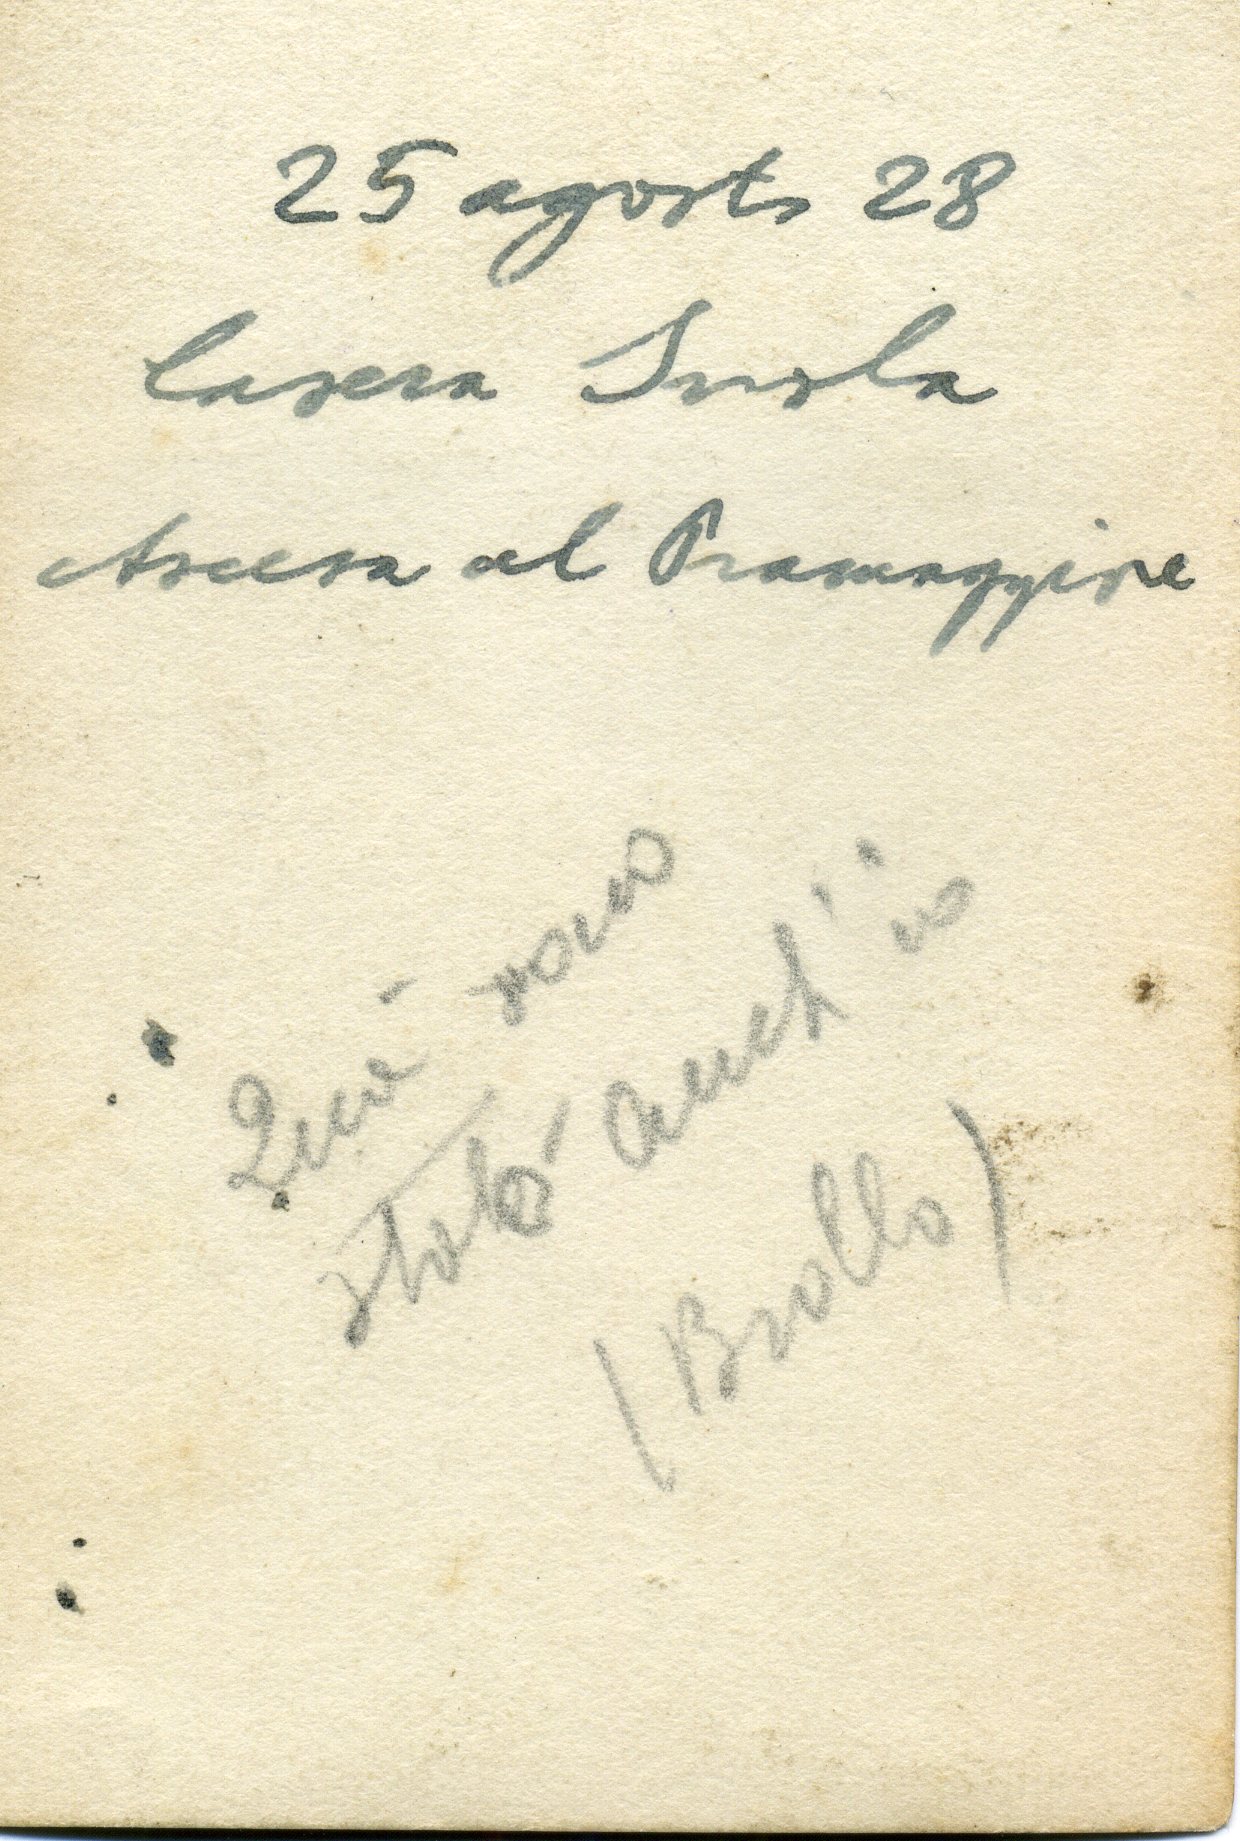 25 agosto 28
Casera Suola
Ascesa al Pramaggiore
Quì sono
stato anch'io
(Brollo)